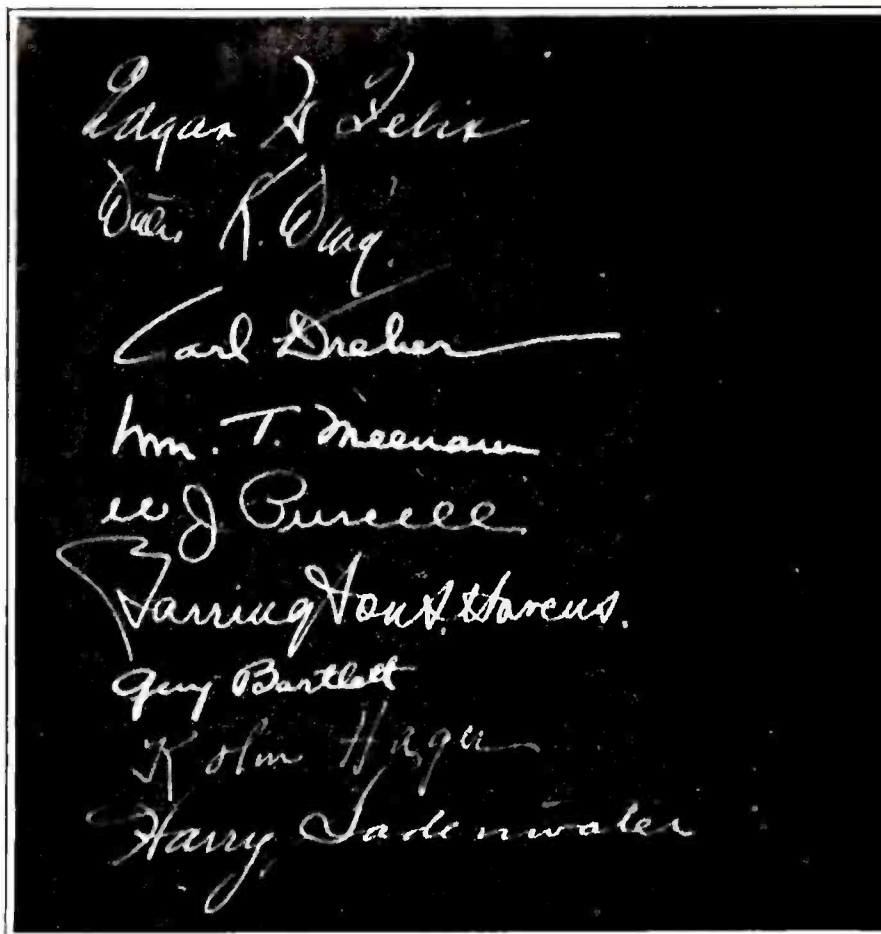 Edgar H Felix
K.
Carl Dreher
Wm. T. Meenam
W J Purcell
Harcus.
Guy Bartlett
Kolin Hager
Harry Sadenwater